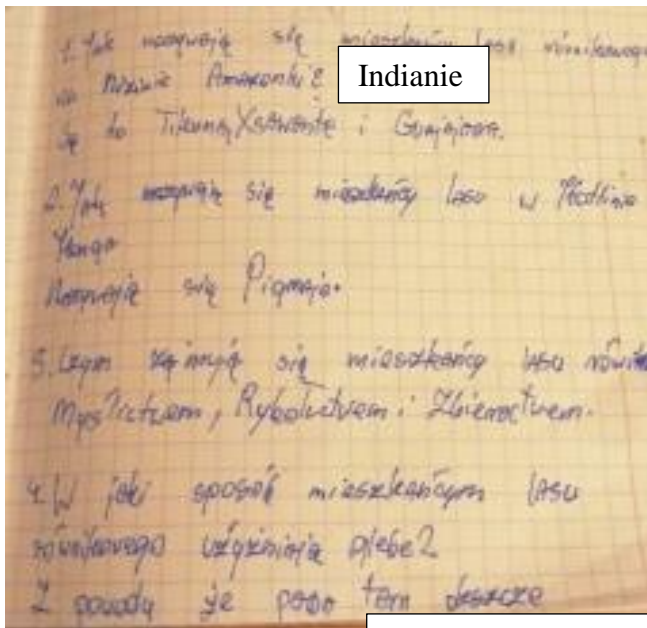 1. Jak nazywają się mieszkańcy lasu równikowego
na Nizinie Amazonki? Indianie
Są to Tikuna, Xavante i Guajajara.
2. Jak nazywają się mieszkańcy lasu w Kotlinie
Konga
Nazywają się Pigmeje.
3. Czym zajmują się mieszkańcy lasu równik
Myslictwem, Rybołóctwem i Zbieractwem.
4. W jaki sposób mieszkańcym lasu
równikowego użyźniają glebe?
Z powodu że pada tam deszcze